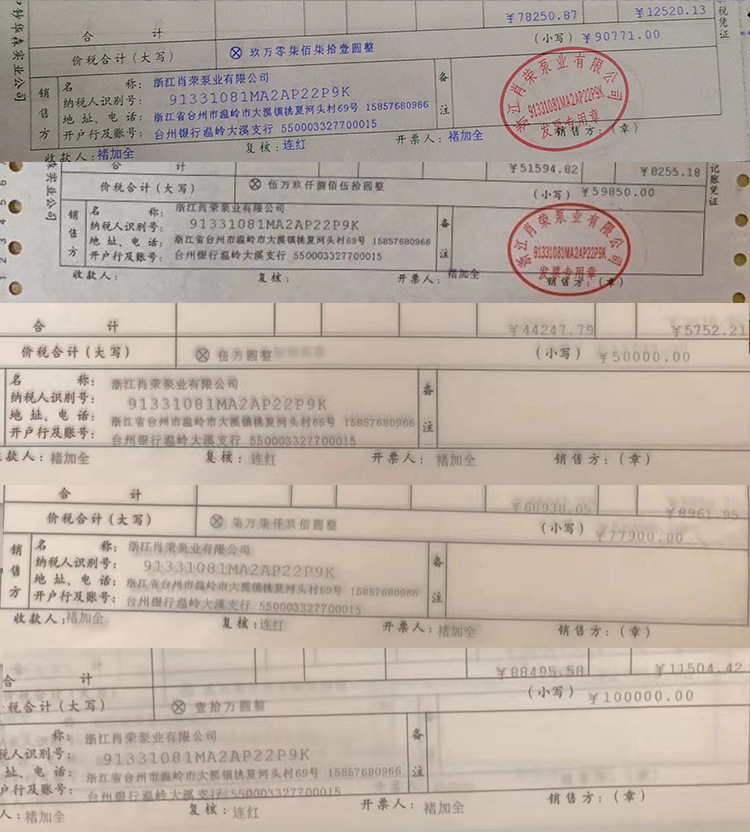 ¥78250.87 ¥12520.13
合 计
价税合计(大写) ⊗ 玖万零柒佰柒拾壹圆整 (小写) ¥90771.00
税凭证
钞华森实业公司
名 称: 浙江肖荣泵业有限公司
纳税人识别号: 91331081MA2AP22P9K
地 址、电 话: 浙江省台州市温岭市大溪镇桃夏河头村69号 15857680966
开户行及账号: 台州银行温岭大溪支行 550003327700015
销售方
备注
浙江肖荣泵业有限公司
91331081MA2AP22P9K
发票专用章
收款人: 褚加全 复核: 连红 开票人: 褚加全 销售方:(章)
合 计 ¥51594.82 ¥8255.18
价税合计(大写) ⊗ 伍万玖仟捌佰伍拾圆整 (小写) ¥59850.00
记账凭证
森实业公司
6
4
3
2
1
名 称: 浙江肖荣泵业有限公司
纳税人识别号: 91331081MA2AP22P9K
地 址、电 话: 浙江省台州市温岭市大溪镇桃夏河头村69号 15857680966
开户行及账号: 台州银行温岭大溪支行 550003327700015
销售方
备注
浙江肖荣泵业有限公司
91331081MA2AP22P9K
发票专用章
收款人: 复核: 开票人: 褚加全 销售方:(章)
合 计 ¥44247.79 ¥5752.21
价税合计(大写) ⊗ 伍万圆整 (小写) ¥50000.00
名 称: 浙江肖荣泵业有限公司
纳税人识别号: 91331081MA2AP22P9K
地 址、电 话: 浙江省台州市温岭市大溪镇桃夏河头村69号 15857680966
开户行及账号: 台州银行温岭大溪支行 550003327700015
备注
款人: 褚加全 复核: 连红 开票人: 褚加全 销售方:(章)
合 计 ¥68938.05 ¥8961.95
价税合计(大写) ⊗ 柒万柒仟玖佰圆整 (小写) ¥77900.00
名 称: 浙江肖荣泵业有限公司
纳税人识别号: 91331081MA2AP22P9K
地 址、电 话: 浙江省台州市温岭市大溪镇桃夏河头村69号 15857680966
开户行及账号: 台州银行温岭大溪支行 550003327700015
销售方
备注
收款人: 褚加全 复核: 连红 开票人: 褚加全 销售方:(章)
合 计 ¥88495.58 ¥11504.42
税合计(大写) ⊗ 壹拾万圆整 (小写) ¥100000.00
称: 浙江肖荣泵业有限公司
税人识别号: 91331081MA2AP22P9K
址、电 话: 浙江省台州市温岭市大溪镇桃夏河头村69号 15857680966
户行及账号: 台州银行温岭大溪支行 550003327700015
备注
人: 褚加全 复核: 连红 开票人: 褚加全 销售方:(章)